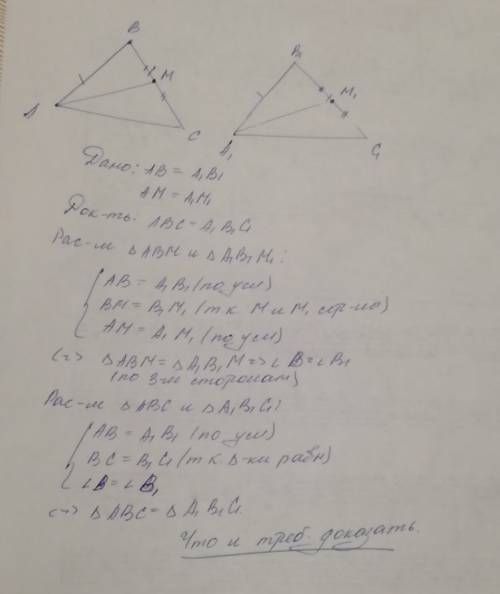 B
M
A
C
B₁
M₁
A₁
C₁
Дано: AB = A₁B₁
AM = A₁M₁
Док-ть: ABC = A₁B₁C₁
Рас-м △ABM и △A₁B₁M₁:
AB = A₁B₁ (по усл)
BM = B₁M₁ (т к M и M₁ сер-на)
AM = A₁M₁ (по усл)
(=) △ABM = △A₁B₁M => ∠B = ∠B₁
(по 3-м сторонам)
Рас-м △ABC и △A₁B₁C₁:
AB = A₁B₁ (по усл)
BC = B₁C₁ (т к △-ки равн)
∠B = ∠B₁
(=) △ABC = △A₁B₁C₁.
Что и треб. доказать.